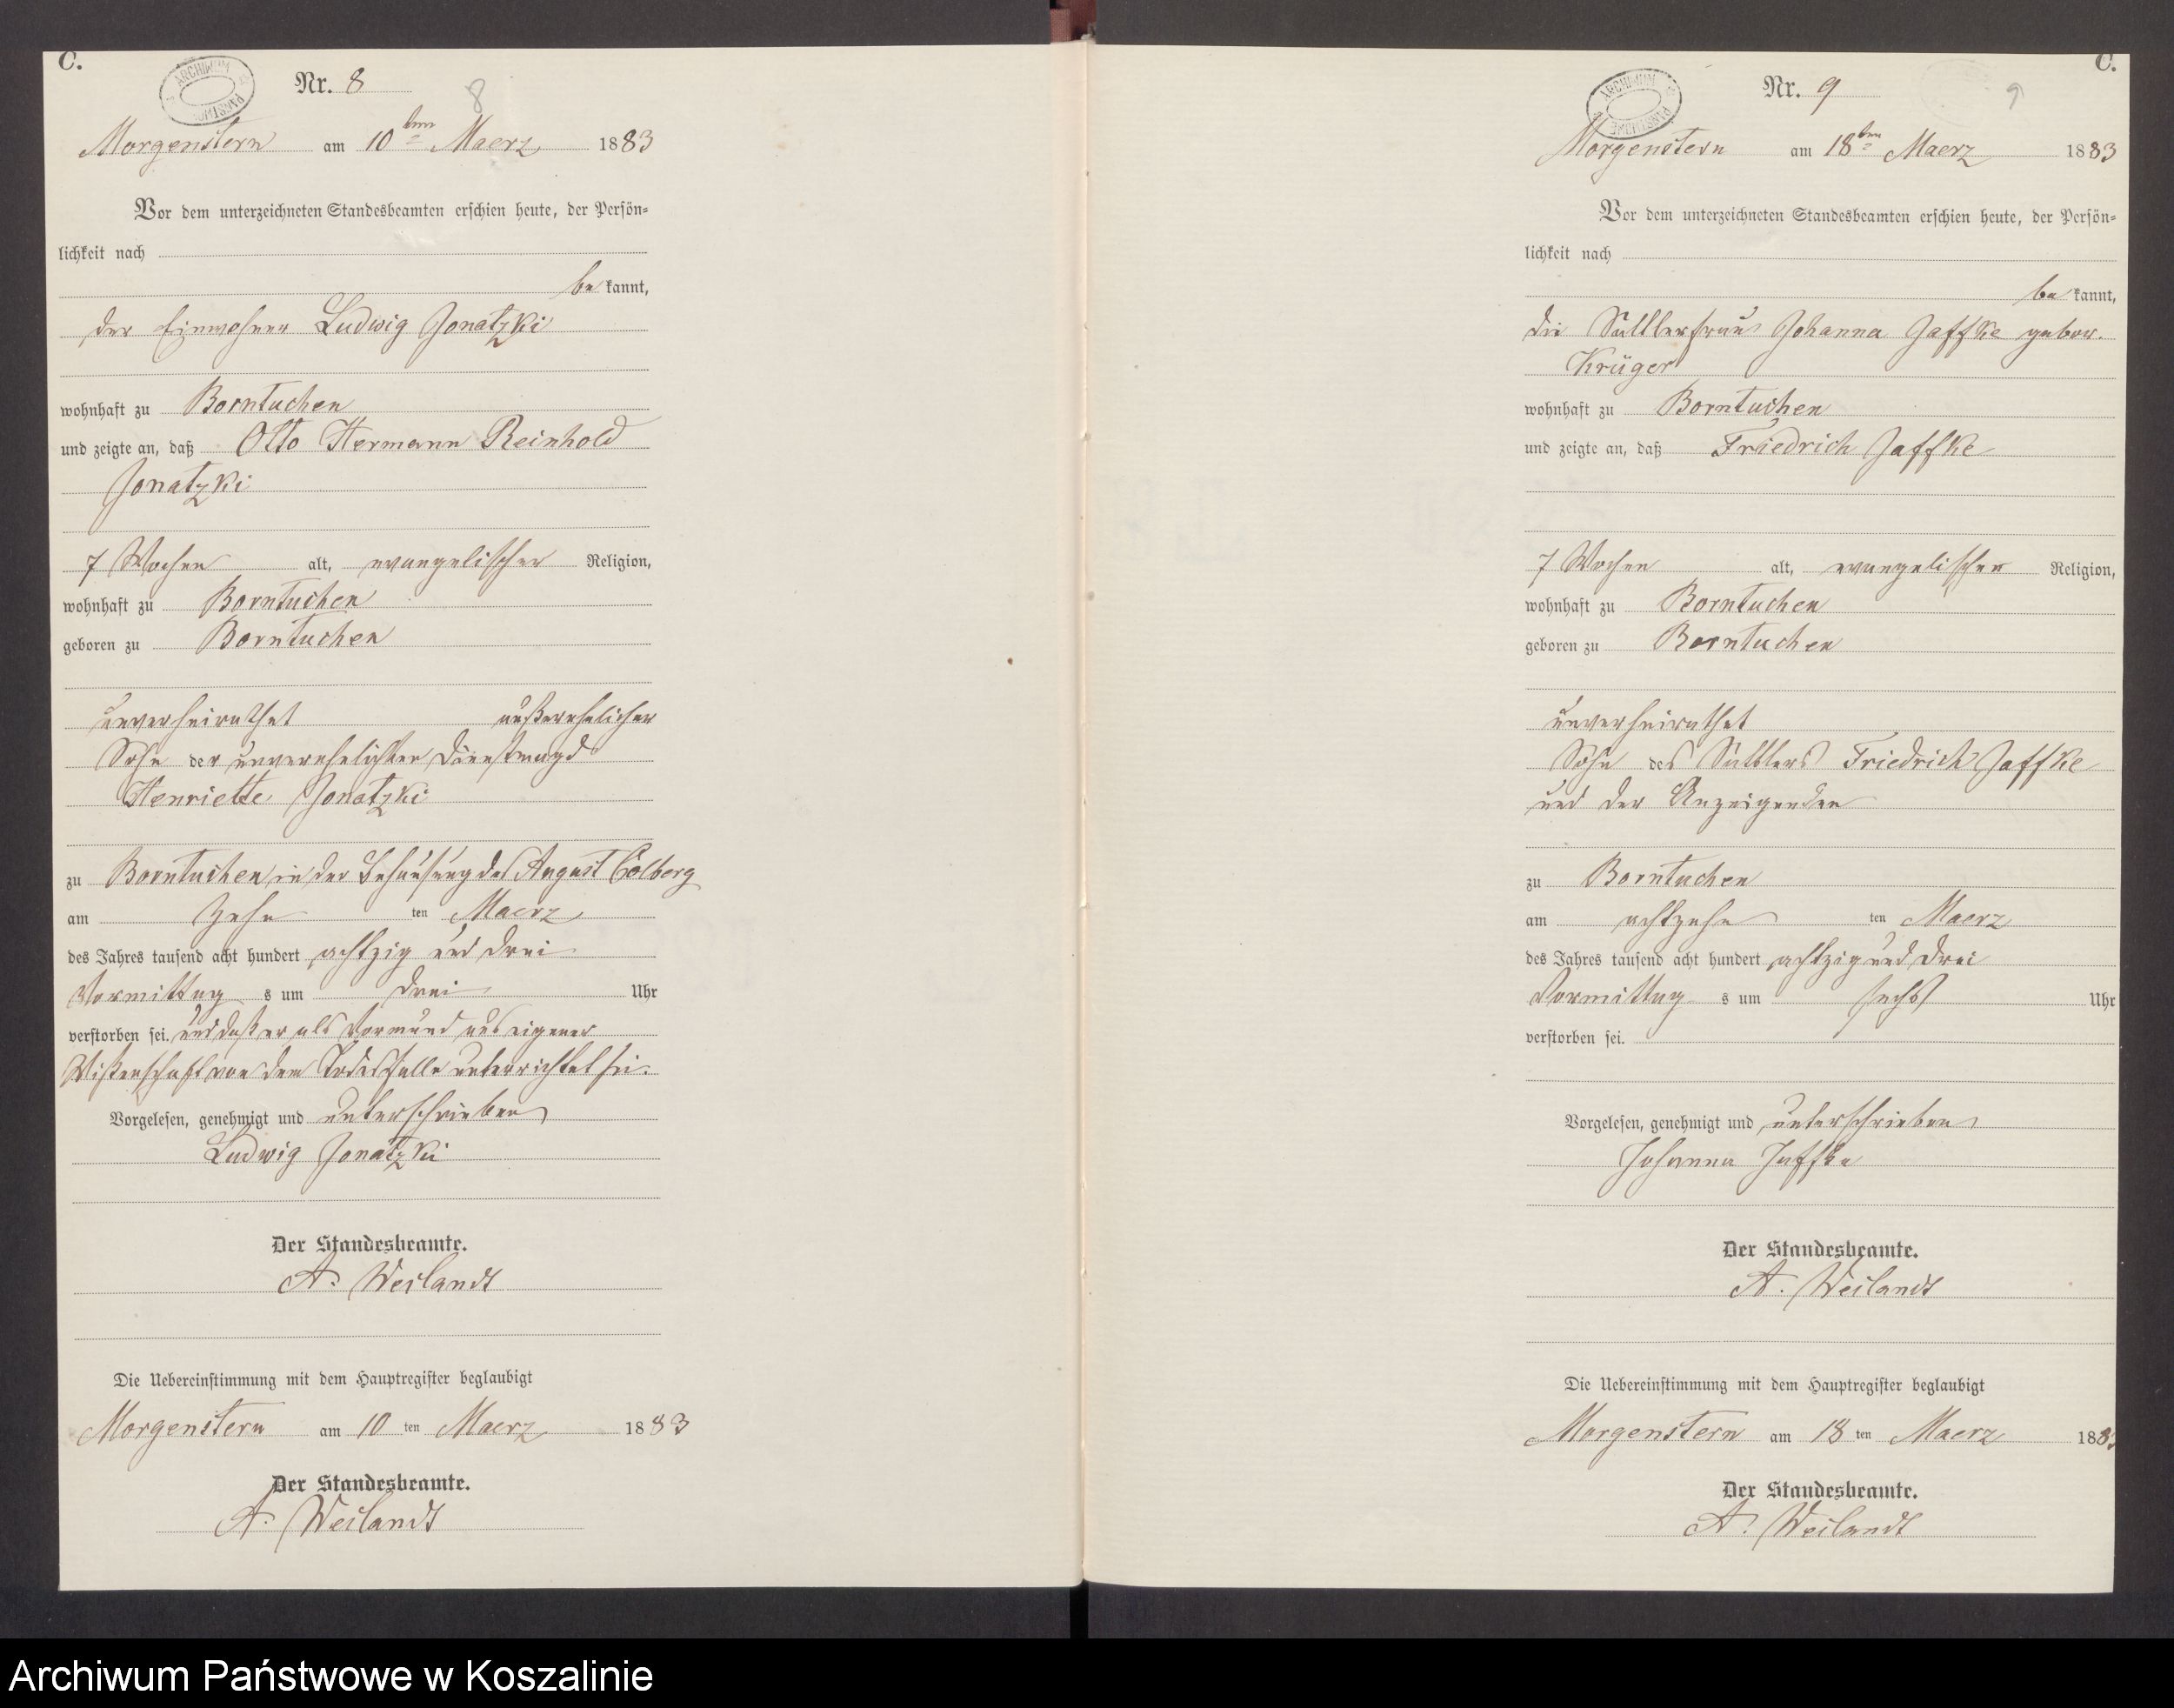 C.
ARCHIWUM PAŃSTWOWE
Nr. 8
8
Morgenstern am 10ten Maerz 1883
Vor dem unterzeichneten Standesbeamten erschien heute, der Persön-
lichkeit nach
be kannt,
der Einwohner Ludwig Jonatzki
wohnhaft zu Borntuchen
und zeigte an, daß Otto Hermann Reinhold
Jonatzki
7 Wochen alt, evangelischer Religion,
wohnhaft zu Borntuchen
geboren zu Borntuchen
unverheirathet außerehelicher
Sohn der unverehelichten Dienstmagd
Henriette Jonatzki
zu Borntuchen in der Behausung des August Colberg
am zehn ten Maerz
des Jahres tausend acht hundert achtzig und drei
Vormittag s um drei Uhr
verstorben sei. und daß er als Vormund aus eigener
Wißenschaft von dem Todesfalle unterrichtet sei.
Vorgelesen, genehmigt und unterschrieben
Ludwig Jonatzki
Der Standesbeamte.
A. Weilandt
Die Uebereinstimmung mit dem Hauptregister beglaubigt
Morgenstern am 10 ten Maerz 1883
Der Standesbeamte.
A. Weilandt
C.
ARCHIWUM PAŃSTWOWE
Nr. 9
9
Morgenstern am 18ten Maerz 1883
Vor dem unterzeichneten Standesbeamten erschien heute, der Persön-
lichkeit nach
be kannt,
die Sattlerfrau Johanna Jaffke gebor.
Krüger
wohnhaft zu Borntuchen
und zeigte an, daß Friedrich Jaffke
7 Wochen alt, evangelischer Religion,
wohnhaft zu Borntuchen
geboren zu Borntuchen
unverheirathet
Sohn des Sattlers Friedrich Jaffke
und der Anzeigenden
zu Borntuchen
am achtzehn ten Maerz
des Jahres tausend acht hundert achtzig und drei
Vormittag s um sechs Uhr
verstorben sei.
Vorgelesen, genehmigt und unterschrieben
Johanna Jaffke
Der Standesbeamte.
A. Weilandt
Die Uebereinstimmung mit dem Hauptregister beglaubigt
Morgenstern am 18 ten Maerz 1883
Der Standesbeamte.
A. Weilandt
Archiwum Państwowe w Koszalinie